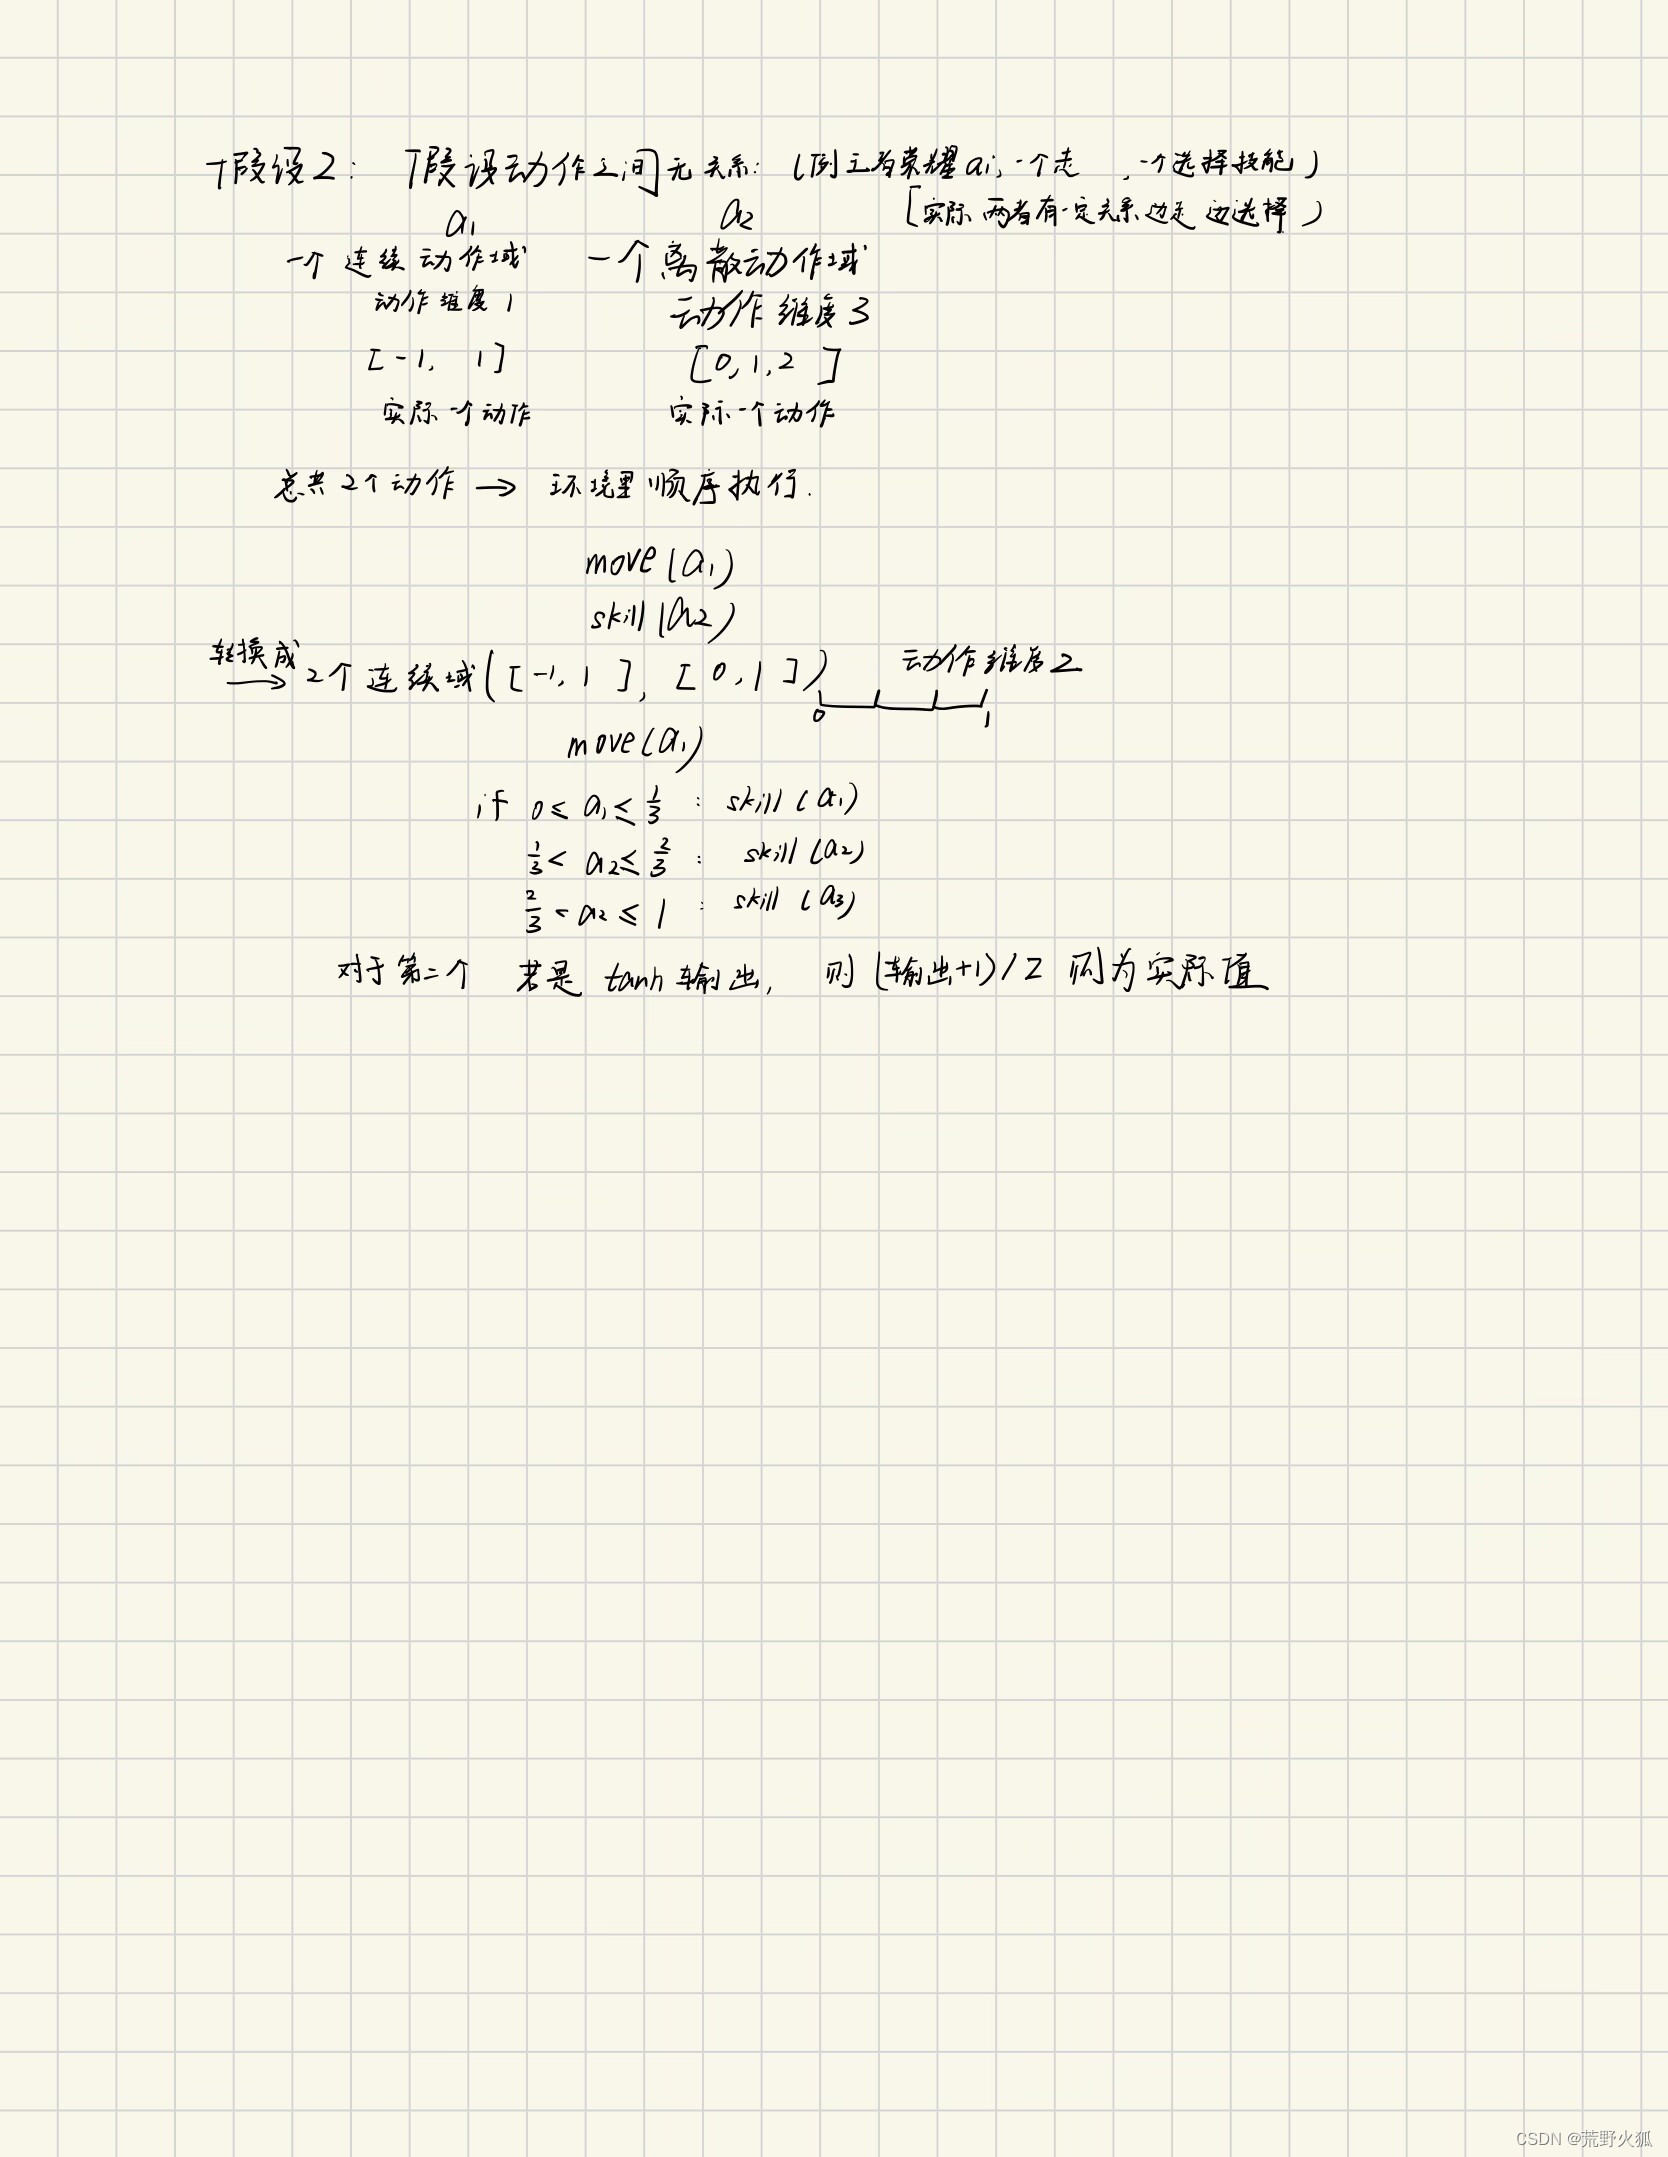 假设2: 假设动作之间无关系: (例王者荣耀ai, 一个走 , 一个选择技能)
[实际 两者有一定关系 边走 边选择)
a₁ a₂
一个 连续 动作域 一个离散动作域
动作维度 1 动作维度3
[-1, 1] [0,1,2 ]
实际一个动作 实际一个动作
总共 2个动作 → 环境里顺序执行.
move(a₁)
skill(a₂)
转换成
→ 2个连续域([-1,1 ], [0,1]) 动作维度2
0 1
move(a₁)
if 0≤ a₁ ≤ 1/3 : skill (a₁)
1/3 < a₂ ≤ 2/3 : skill (a₂)
2/3 < a₂ ≤ 1 : skill (a₃)
对于第二个 若是 tanh 输出, 则 (输出+1)/2 则为实际值
CSDN @荒野火狐